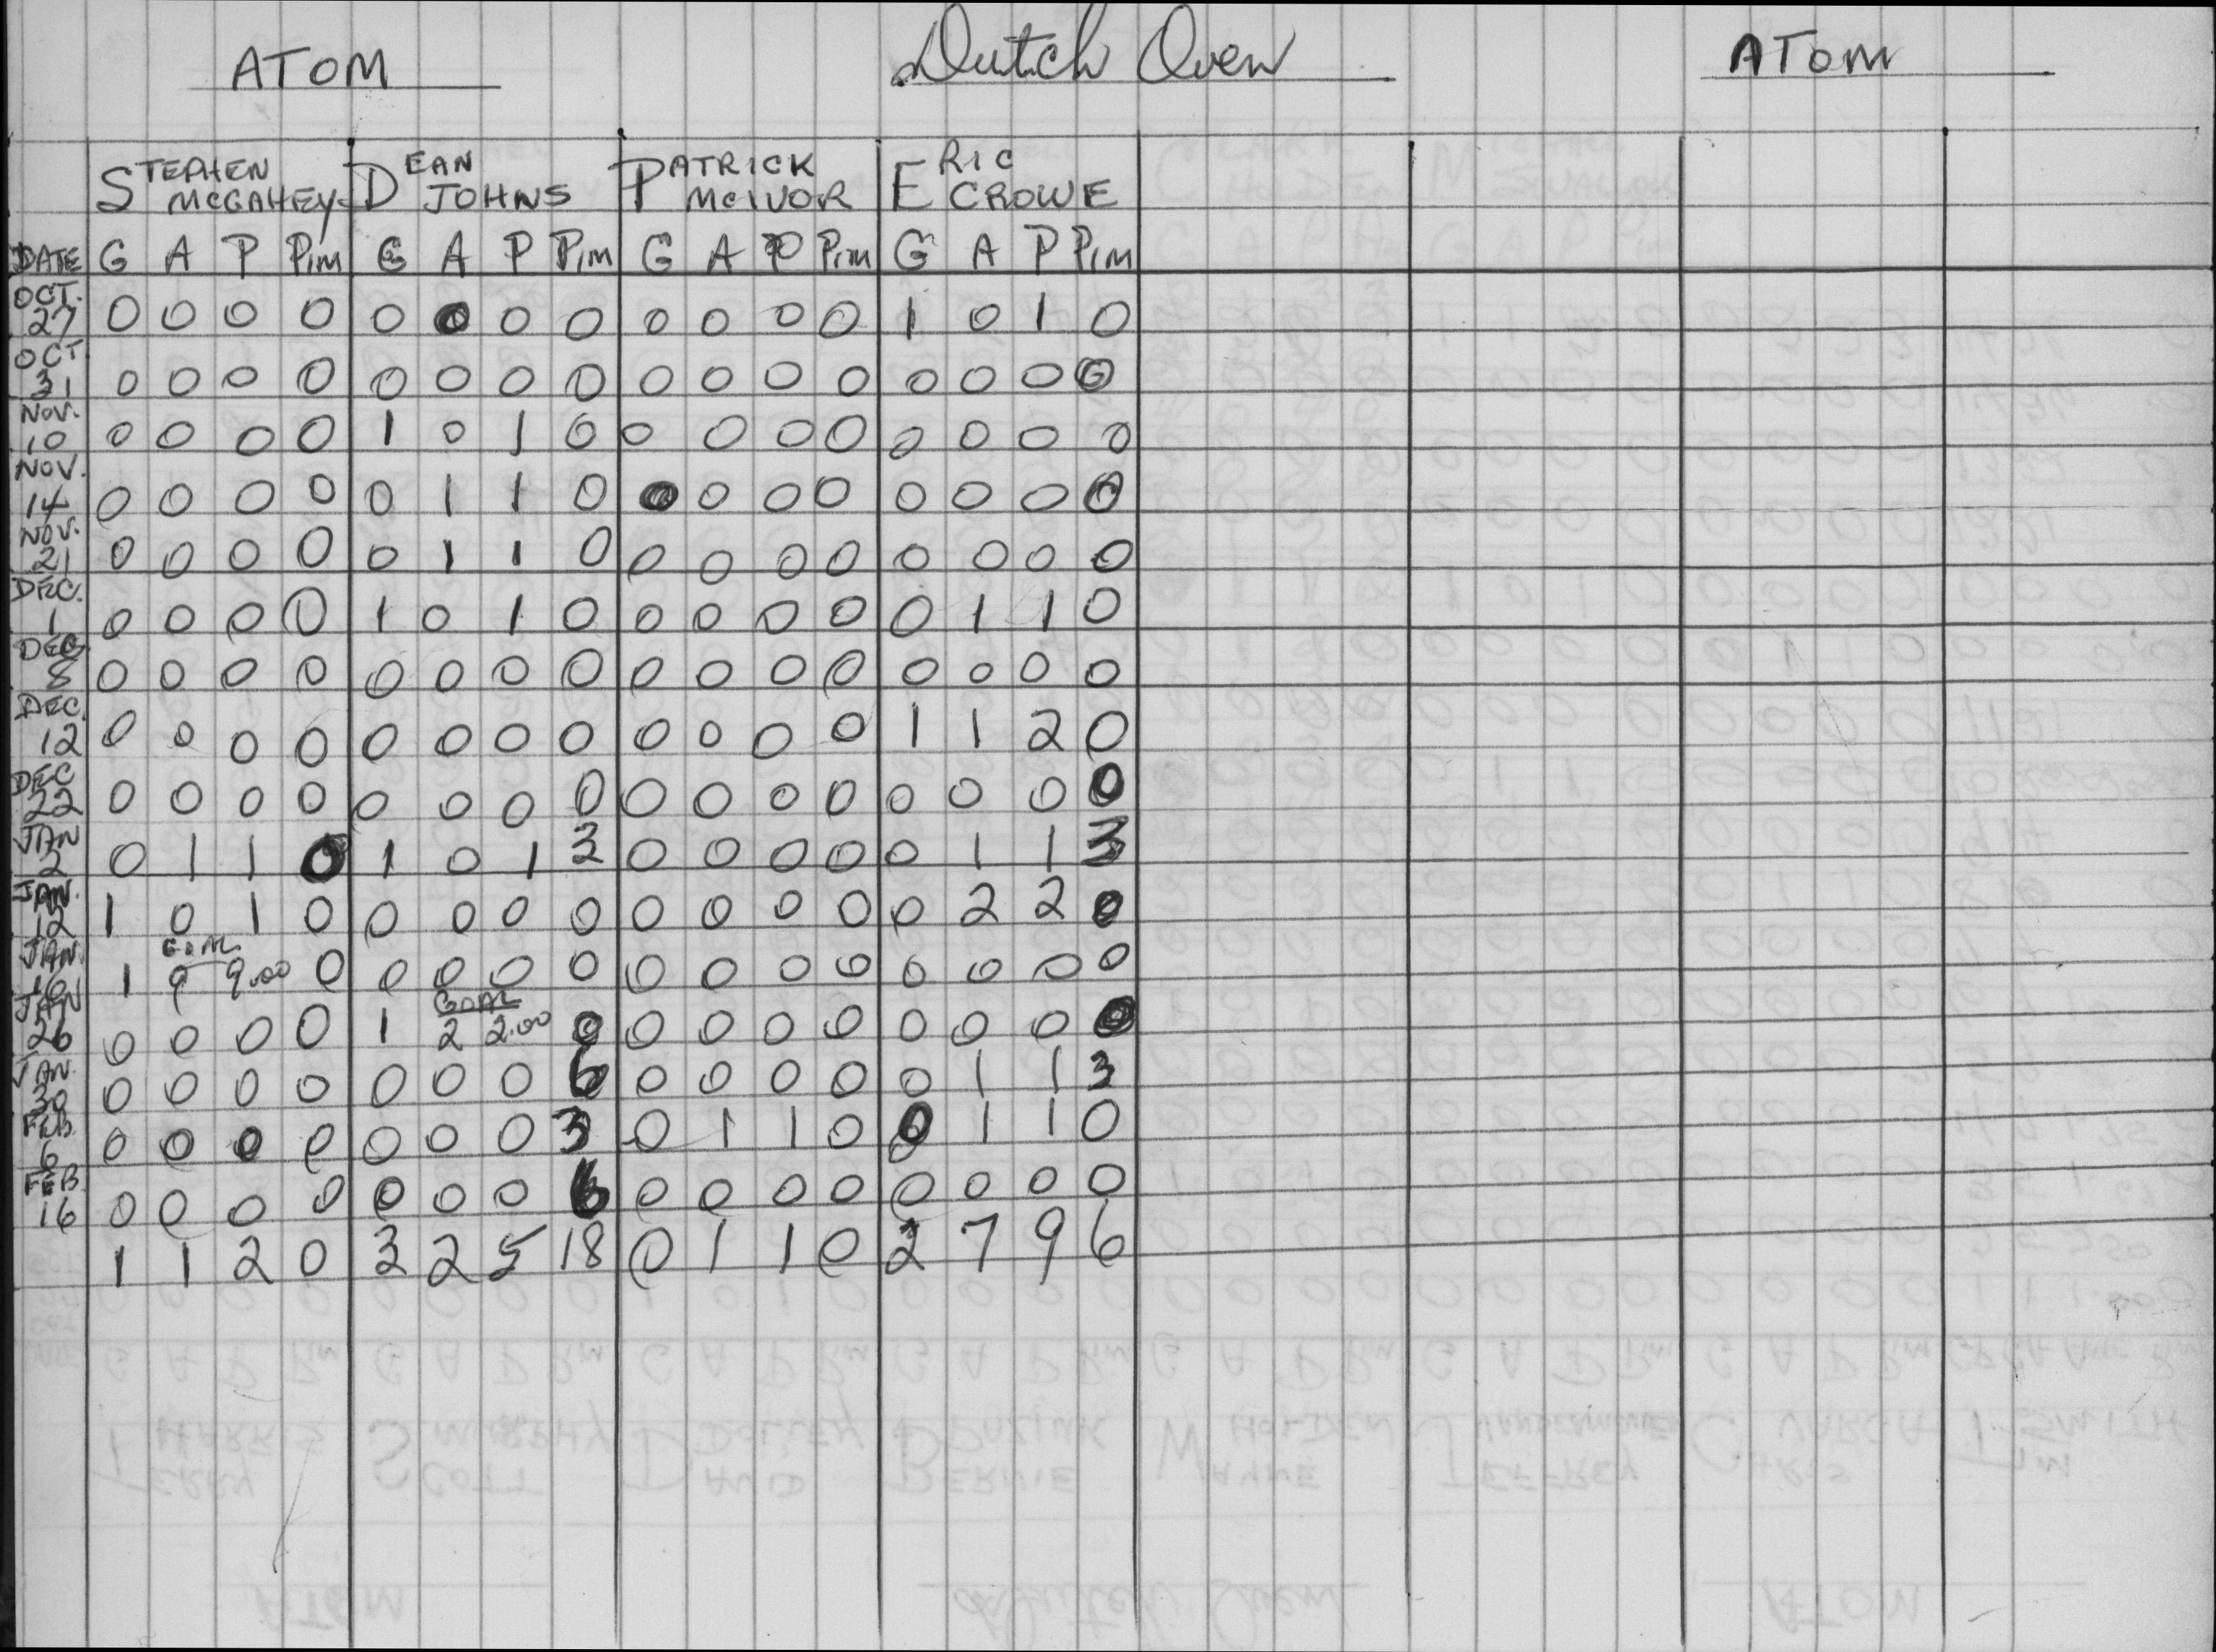 ATOM Dutch Oven ATOM
STEPHEN MCGAHEY DEAN JOHNS PATRICK MCIVOR ERIC CROWE
DATE G A P Pim G A P Pim G A P Pim G A P Pim
OCT. 27 0 0 0 0 0 0 0 0 0 0 0 0 1 0 1 0
OCT 31 0 0 0 0 0 0 0 0 0 0 0 0 0 0 0 0
NOV. 10 0 0 0 0 1 0 1 0 0 0 0 0 0 0 0 0
NOV. 14 0 0 0 0 0 1 1 0 0 0 0 0 0 0 0 0
NOV. 21 0 0 0 0 0 1 1 0 0 0 0 0 0 0 0 0
DEC. 1 0 0 0 0 1 0 1 0 0 0 0 0 0 1 1 0
DEC 8 0 0 0 0 0 0 0 0 0 0 0 0 0 0 0 0
DEC. 12 0 0 0 0 0 0 0 0 0 0 0 0 1 1 2 0
DEC 22 0 0 0 0 0 0 0 0 0 0 0 0 0 0 0 0
JAN 2 0 1 1 0 1 0 1 3 0 0 0 0 0 1 1 3
JAN. 12 1 0 1 0 0 0 0 0 0 0 0 0 0 2 2 0
GOAL
JAN. 16 1 9 9.00 0 0 0 0 0 0 0 0 0 0 0 0 0
GOAL
JAN 26 0 0 0 0 1 2 2.00 0 0 0 0 0 0 0 0 0
JAN. 30 0 0 0 0 0 0 0 6 0 0 0 0 0 1 1 3
FEB. 6 0 0 0 0 0 0 0 3 0 1 1 0 0 1 1 0
FEB. 16 0 0 0 0 0 0 0 6 0 0 0 0 0 0 0 0
1 1 2 0 3 2 5 18 0 1 1 0 2 7 9 6